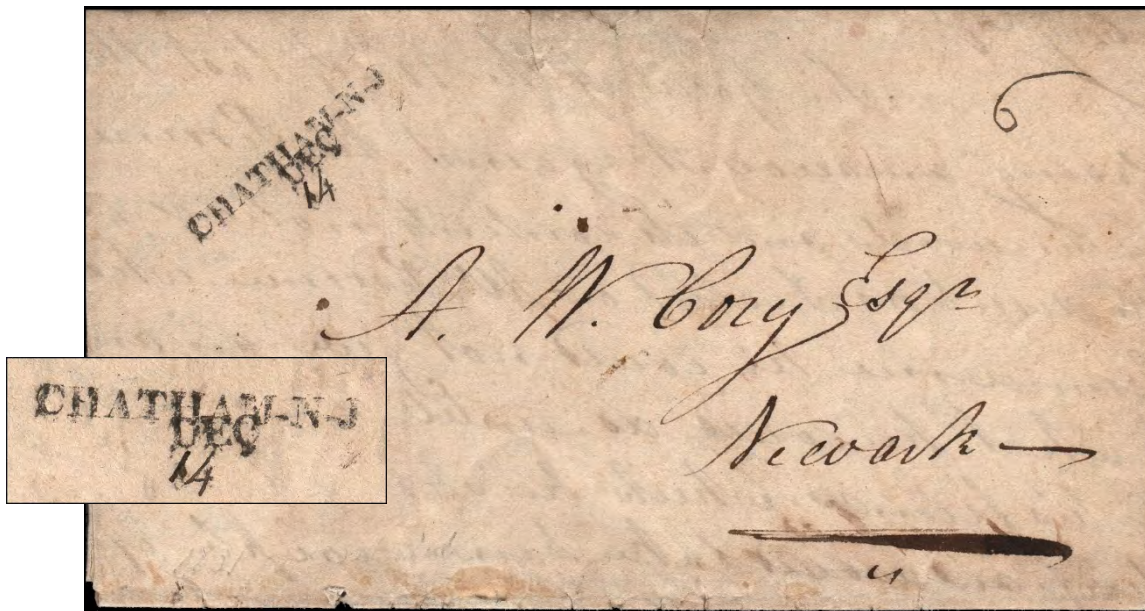 CHATHAM-N-J
DEC
14
6
A. W. Cory Esqr
Newark
CHATHAM-N-J
DEC
14